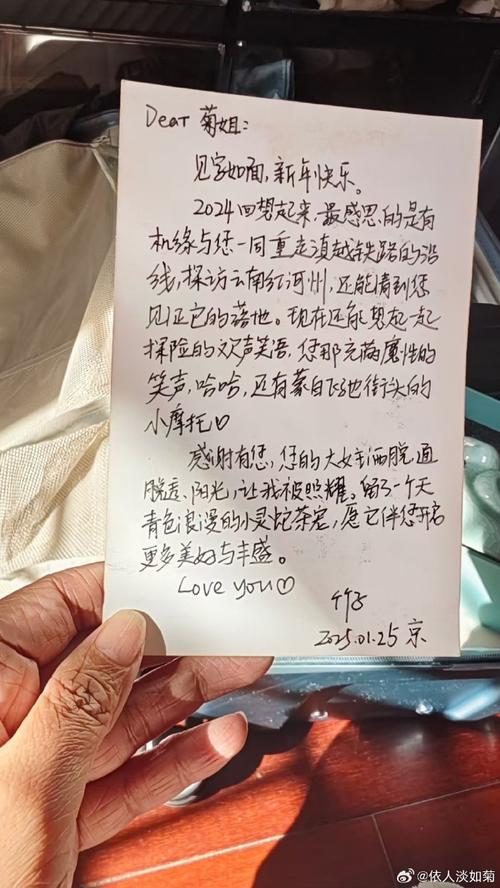 Dear 菊姐:
见字如面,新年快乐。
2024回想起来,最感恩的是有
机缘与您一同重走滇越铁路的沿
线,探访云南红河州,还能请到您
见证它的落地。现在还能想起一起
探险的欢声笑语,您那充满魔性的
笑声,哈哈,还有蒙自飞驰街头的
小摩托♡
感谢有您,您的大女主洒脱、通
脱、阳光,让我被照耀。留了一个天
青色浪漫的小灵蛇茶宠,愿它伴您开启
更多美好与丰盛。
Love you♡
2025.01.25 京
@依人淡如菊